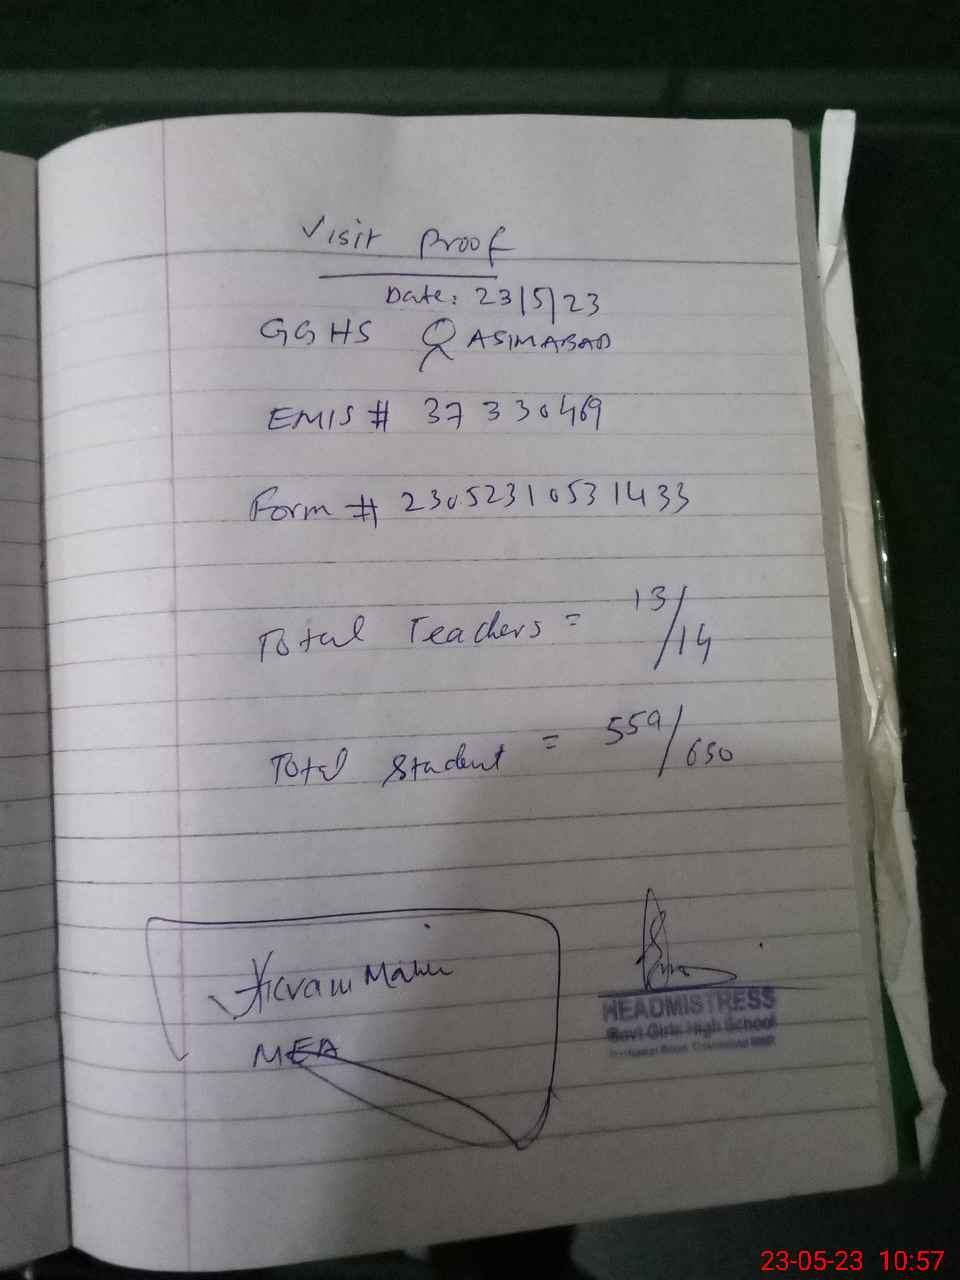 Visit Proof
Date: 23/5/23
GGHS QASIMABAD
EMIS # 37330469
Form # 23052310531433
Total Teachers = 13/14
Total Student = 559/650
MEA
HEADMISTRESS
Govt Girls High School
23-05-23 10:57